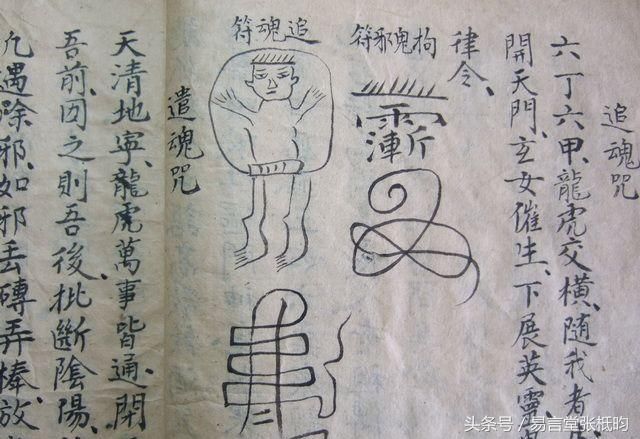 追魂咒
六丁六甲、龍虎交橫、隨我者
開天門、玄女催生、下展英靈
律令、
拘鬼邪符
追魂符
遣魂咒
天清地寧、龍虎萬事皆通、閉
吾前、因之則吾後、批斷陰陽、
凡遇除邪、如邪丢磚弄棒、放
头条号／易言堂张柢昀